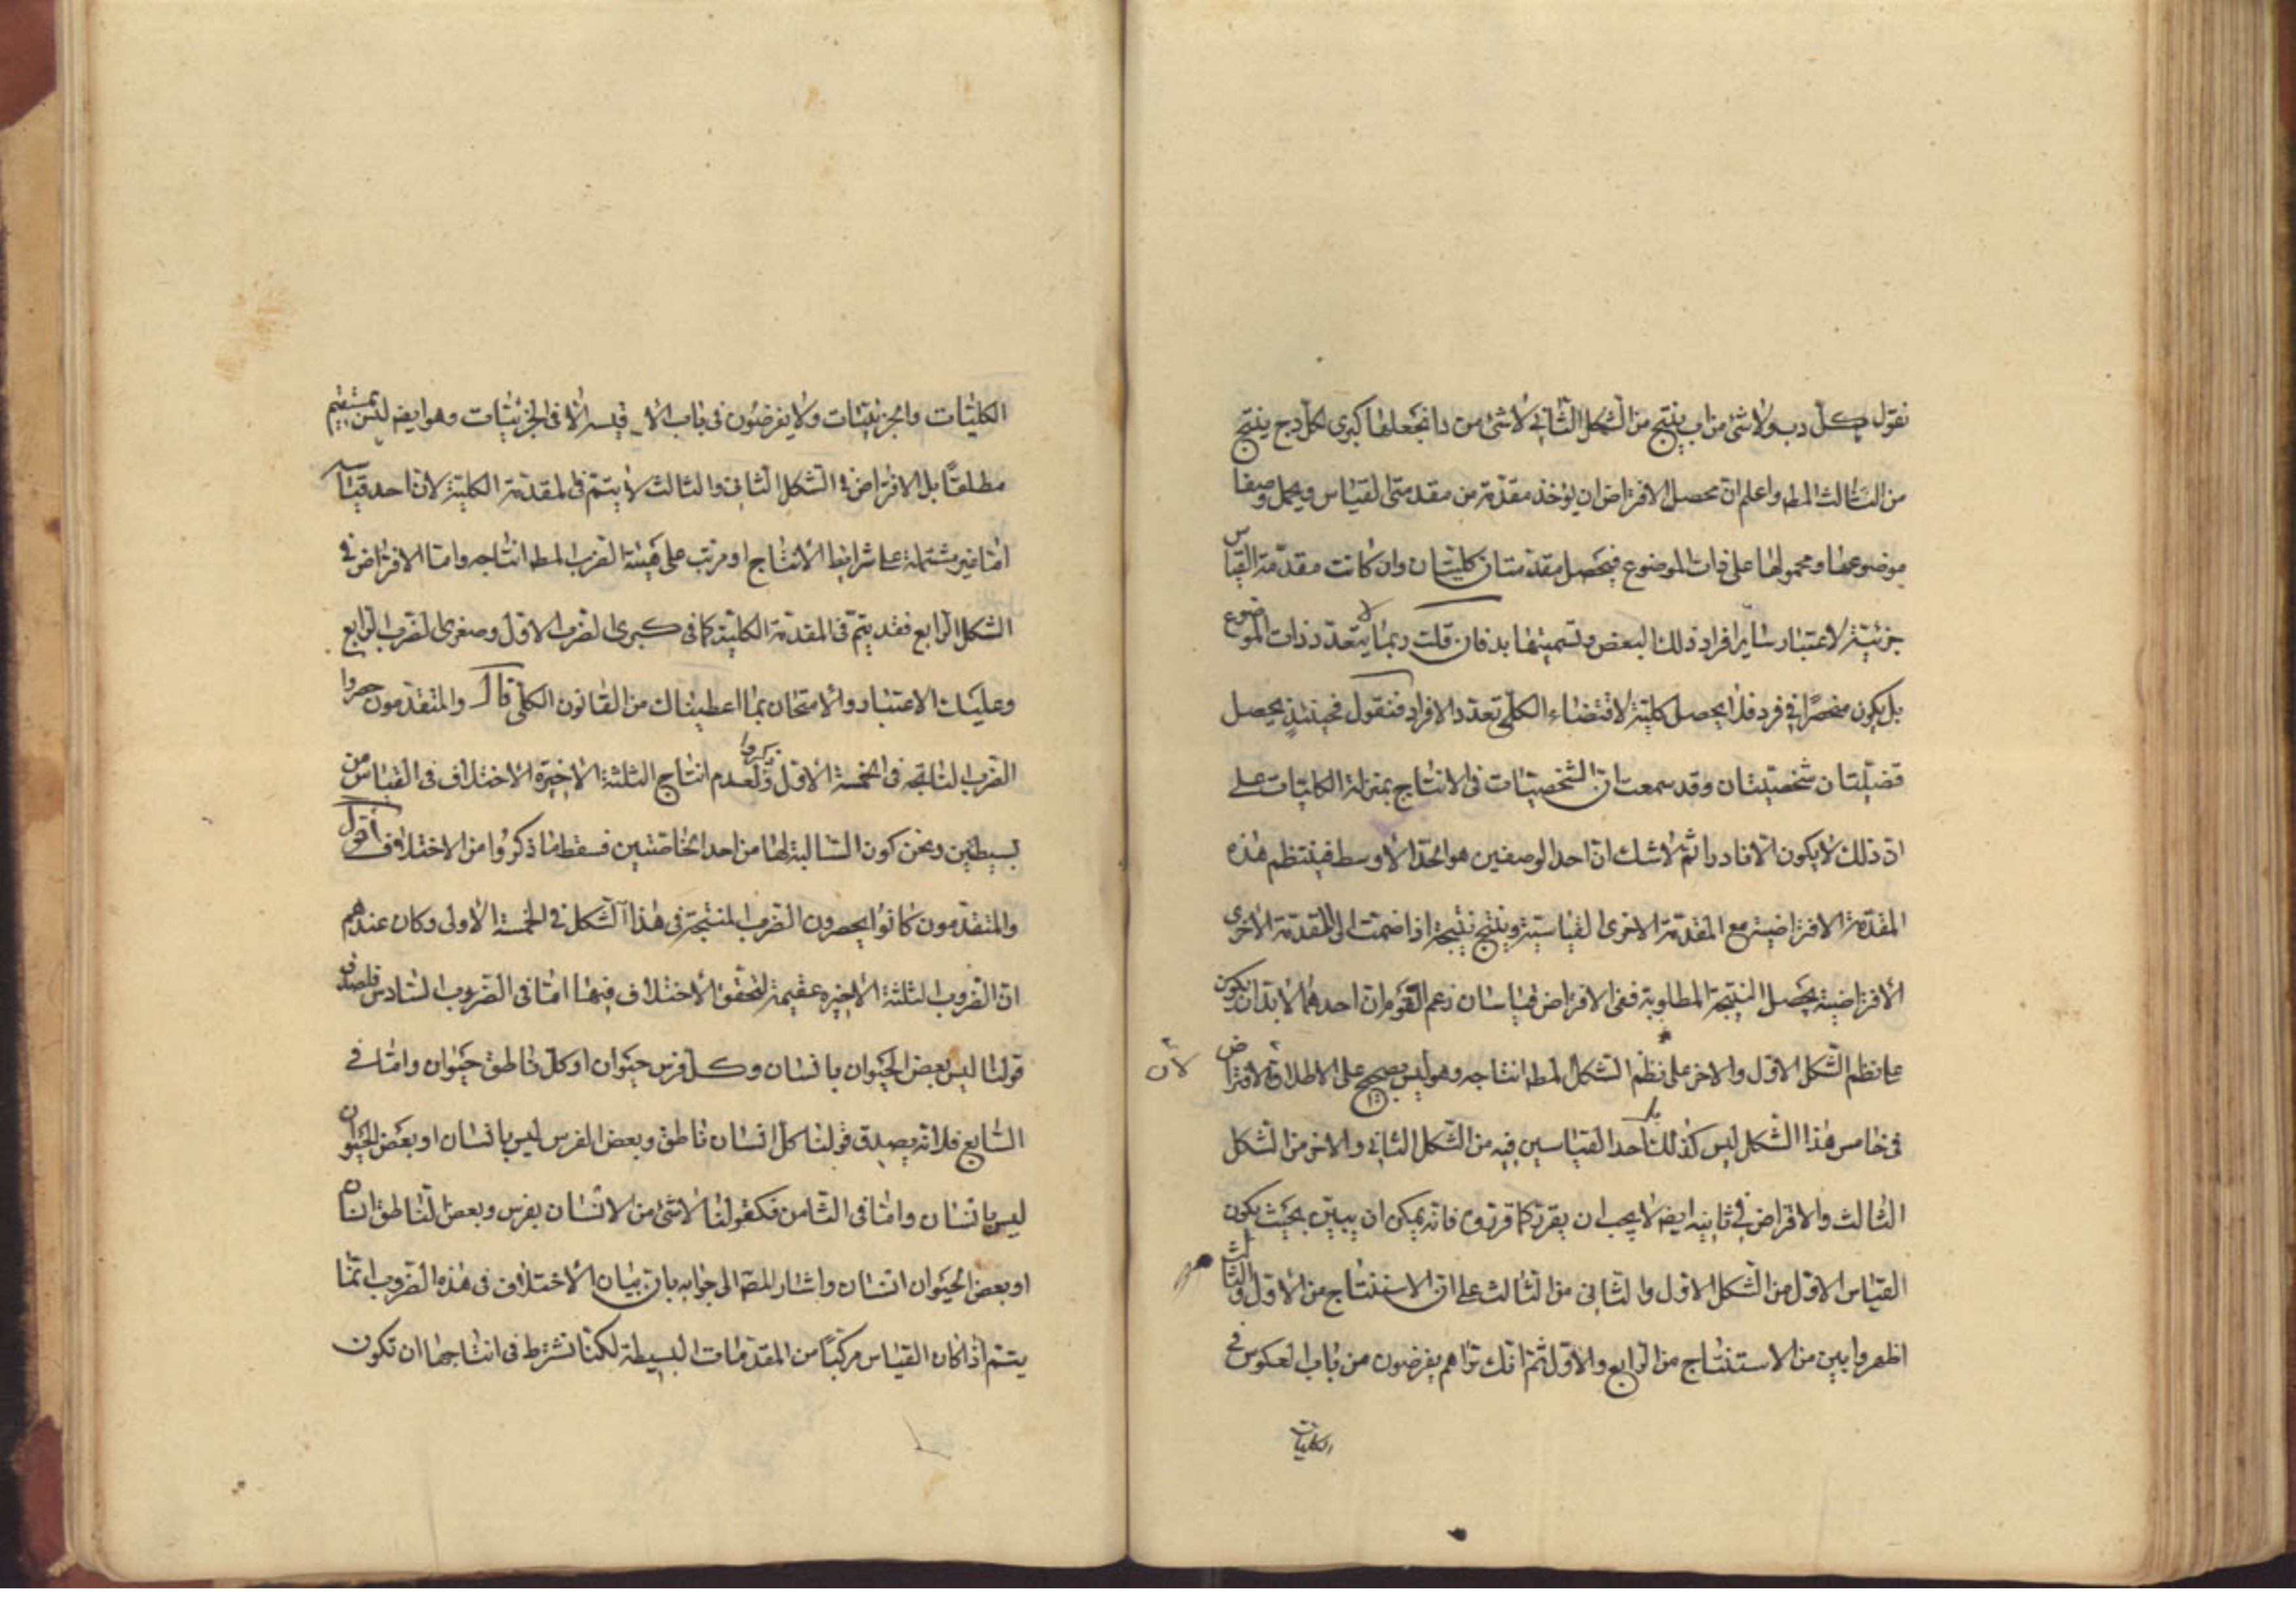 نقول كل د ب ولاشئ من اب ينتج من الشكل الثانى لاشئ من د ا نجعلها كبرى لكل د ج ينتج
من الثالث المط واعلم ان محصل الافتراض ان يؤخذ مقدمة من مقدمتى القياس ويحمل وصفا
موضوعها ومحمولها على ذات الموضوع فيحصل مقدمتان كليتان وان كانت مقدمة القياس
جزئية لاعتبار ساير افراد ذلك البعض وتسميتها بد فان قلت ربما لا يتعدد ذات الموضوع
بل يكون منحصرا فى فرد فلا يحصل كلية لاقتضاء الكلى تعدد الافراد فنقول فحينئذ يحصل
قضيتان شخصيتان وقد سمعت ان الشخصيات فى الانتاج بمنزلة الكليات على
ان ذلك لا يكون الا نادرا ثم لاشك ان احد الوصفين هو الحد الاوسط فينتظم هذه
المقدمة الافتراضية مع المقدمة الاخرى القياسية وينتج نتيجة اذا ضمت الى المقدمة الاخرى
الافتراضية يحصل النتيجة المطلوبة ففى الافتراض قياسان زعم القوم ان احدهما لابد ان يكون
على نظم الشكل الاول والاخر على نظم الشكل المط انتاجه وهو ليس بصحيح على الاطلاق لان الافتراض
فى خامس هذا الشكل ليس كذلك بل احد القياسين فيه من الشكل الثانى والاخر من الشكل
الثالث والافراض فى ثانيه ايضا لا يجب ان يقرر كما قرروه فانه يمكن ان يبين بحيث يكون
القياس الاول من الشكل الاول والثانى من الثالث على ان الاستنتاج من الاول والثالث
اظهر وابين من الاستنتاج من الرابع والاول ثم انك تراهم يفرضون من باب العكوس فى
الكليات
الكليات والجزئيات ولا يفرضون فى باب الا قيسة الا فى الجزئيات وهو ايضا ليس بمستقيم
مطلقا بل الافتراض فى الشكل الثانى والثالث لا يتم فى المقدمة الكلية لان احد قياسيه
اما غير مشتملة على شرايط الانتاج او مرتب على هيئة الضرب المط انتاجه واما الافتراض فى
الشكل الرابع فقد يتم فى المقدمة الكلية كما فى كبرى الضرب الاول وصغرى الضرب الرابع
وعليك الاعتبار والامتحان بما اعطيناك من القانون الكلى قال والمتقدمون حصروا
الضرب الناتجه فى الخمسة الاول وذكروا لعدم انتاج الثلثة الاخيرة الاختلاف فى القياس من
بسيطتين ونحن كون السالبة لها من احد الخاصتين فسقط ما ذكروا من الاختلاف اقول
والمتقدمون كانوا يحصرون الضرب المنتجة فى هذا الشكل فى الخمسة الاولى وكان عندهم
ان الضروب الثلثة الاخيره عقيمة لتحقق الاختلاف فيها اما فى الضروب السادس فلصدق
قولنا ليس بعض الحيوان بانسان وكل فرس حيوان او كل ناطق حيوان واما فى
السابع فلانه يصدق قولنا كل انسان ناطق وبعض الفرس ليس بانسان او بعض الحيوان
ليس بانسان واما فى الثامن فكقولنا لاشئ من الانسان بفرس وبعض الناطق انسان
او بعض الحيوان انسان واشار المص الى جوابه بان بيان الاختلاف فى هذه الضروب انما
يتم اذا كان القياس مركبا من المقدمات البسيطة لكنا نشترط فى انتاجها ان تكون